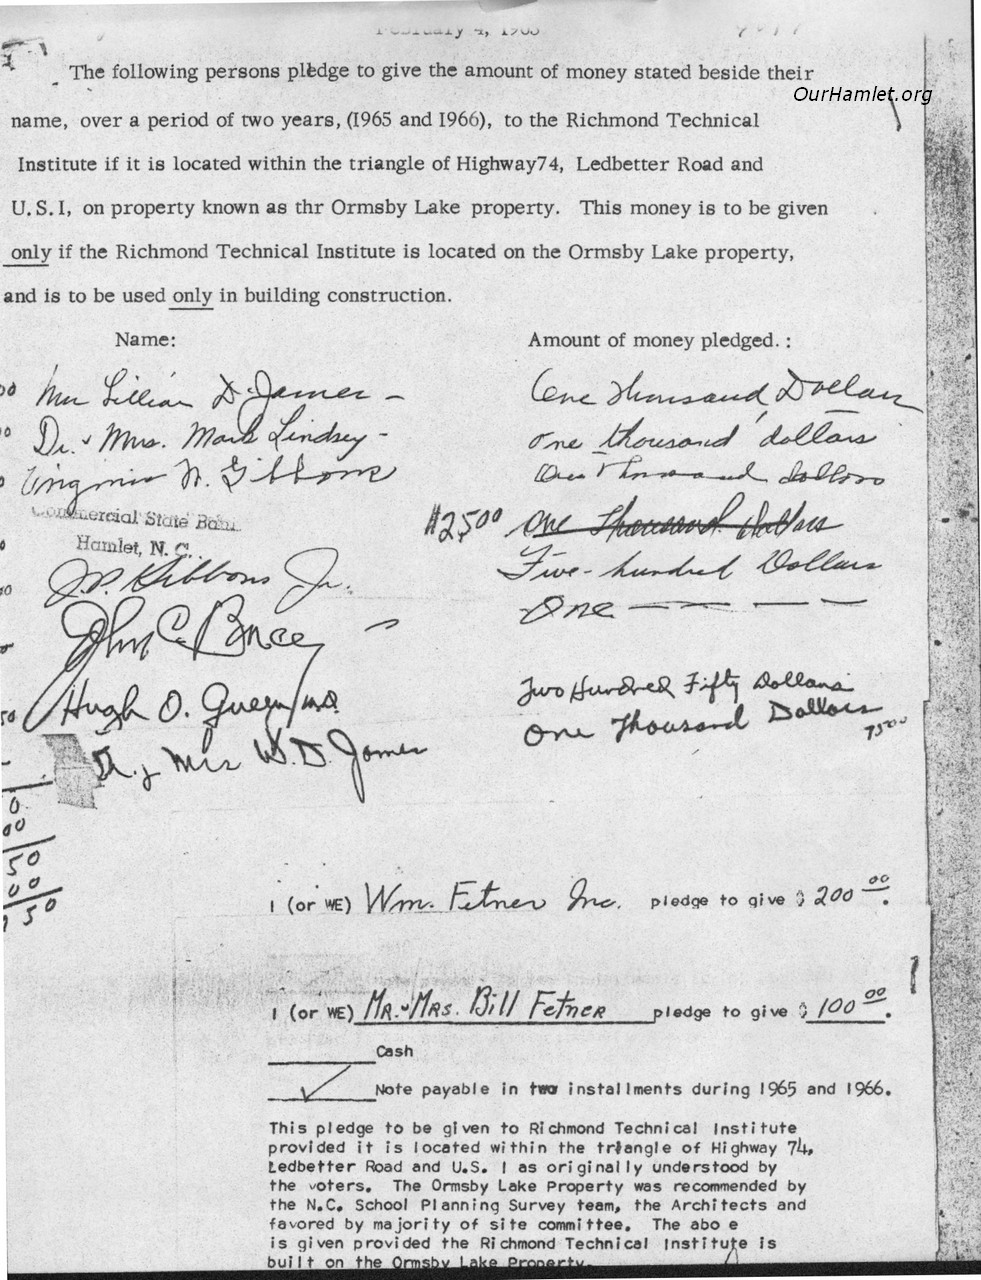 February 4, 1965
The following persons pledge to give the amount of money stated beside their
OurHamlet.org
name, over a period of two years, (1965 and 1966), to the Richmond Technical
Institute if it is located within the triangle of Highway74, Ledbetter Road and
U.S.I, on property known as thr Ormsby Lake property. This money is to be given
only if the Richmond Technical Institute is located on the Ormsby Lake property,
and is to be used only in building construction.
Name: Amount of money pledged. :
Mrs Lillian D. James - One Thousand Dollars
Dr. & Mrs. Mark Lindsey - One thousand dollars
Virginia N. Gibbons One Thousand dollars
Commercial State Bank $2500 One Thousand Dollars
Hamlet, N. C.
J.P. Gibbons Jr. Five-hundred Dollars
John C. One — — — —
Hugh O. Queen, M.D. Two Hundred Fifty Dollars
Dr. & Mrs W. D. James One Thousand Dollars
7500
0
00
50
00
50
I (or WE) Wm. Fetner Inc. pledge to give $ 200 00.
I (or WE) MR. & MRS. Bill Fetner pledge to give $ 100 00.
Cash
✓ Note payable in two installments during 1965 and 1966.
This pledge to be given to Richmond Technical Institute
provided it is located within the triangle of Highway 74,
Ledbetter Road and U.S. I as originally understood by
the voters. The Ormsby Lake Property was recommended by
the N.C. School Planning Survey team, the Architects and
favored by majority of site committee. The abo e
is given provided the Richmond Technical Institute is
built on the Ormsby Lake Property.